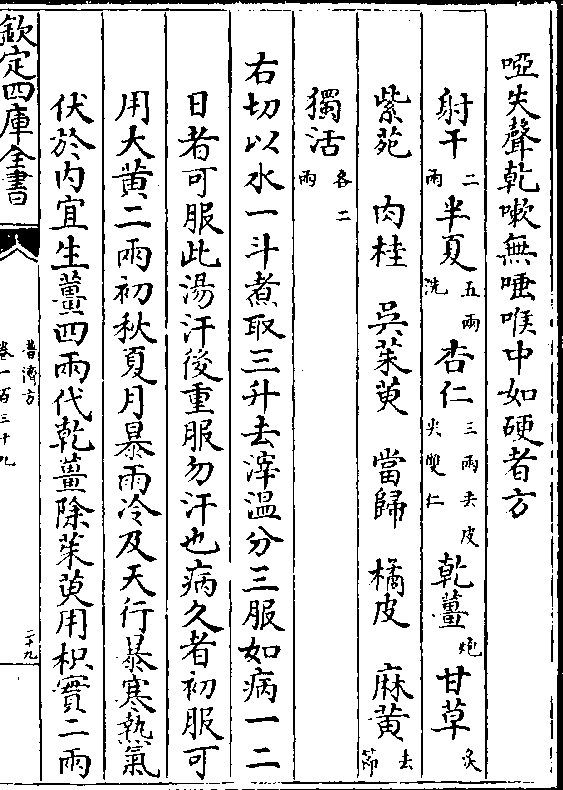 啞失聲乾嗽無唾喉中如硬者方
射干二兩 半夏五兩洗 杏仁三兩去皮尖雙仁 乾薑炮 甘草炙
紫苑 肉桂 吳茱萸 當歸 橘皮 麻黄去節
獨活各二兩
右切以水一斗煮取三升去滓温分三服如病一二
日者可服此湯汗後重服勿汗也病久者初服可
用大黄二兩初秋夏月暴雨冷及天行暴寒熱氣
伏於内宜生薑四兩代乾薑除茱萸用枳實二兩
欽定四庫全書
普濟方
卷一百三十九
二十九